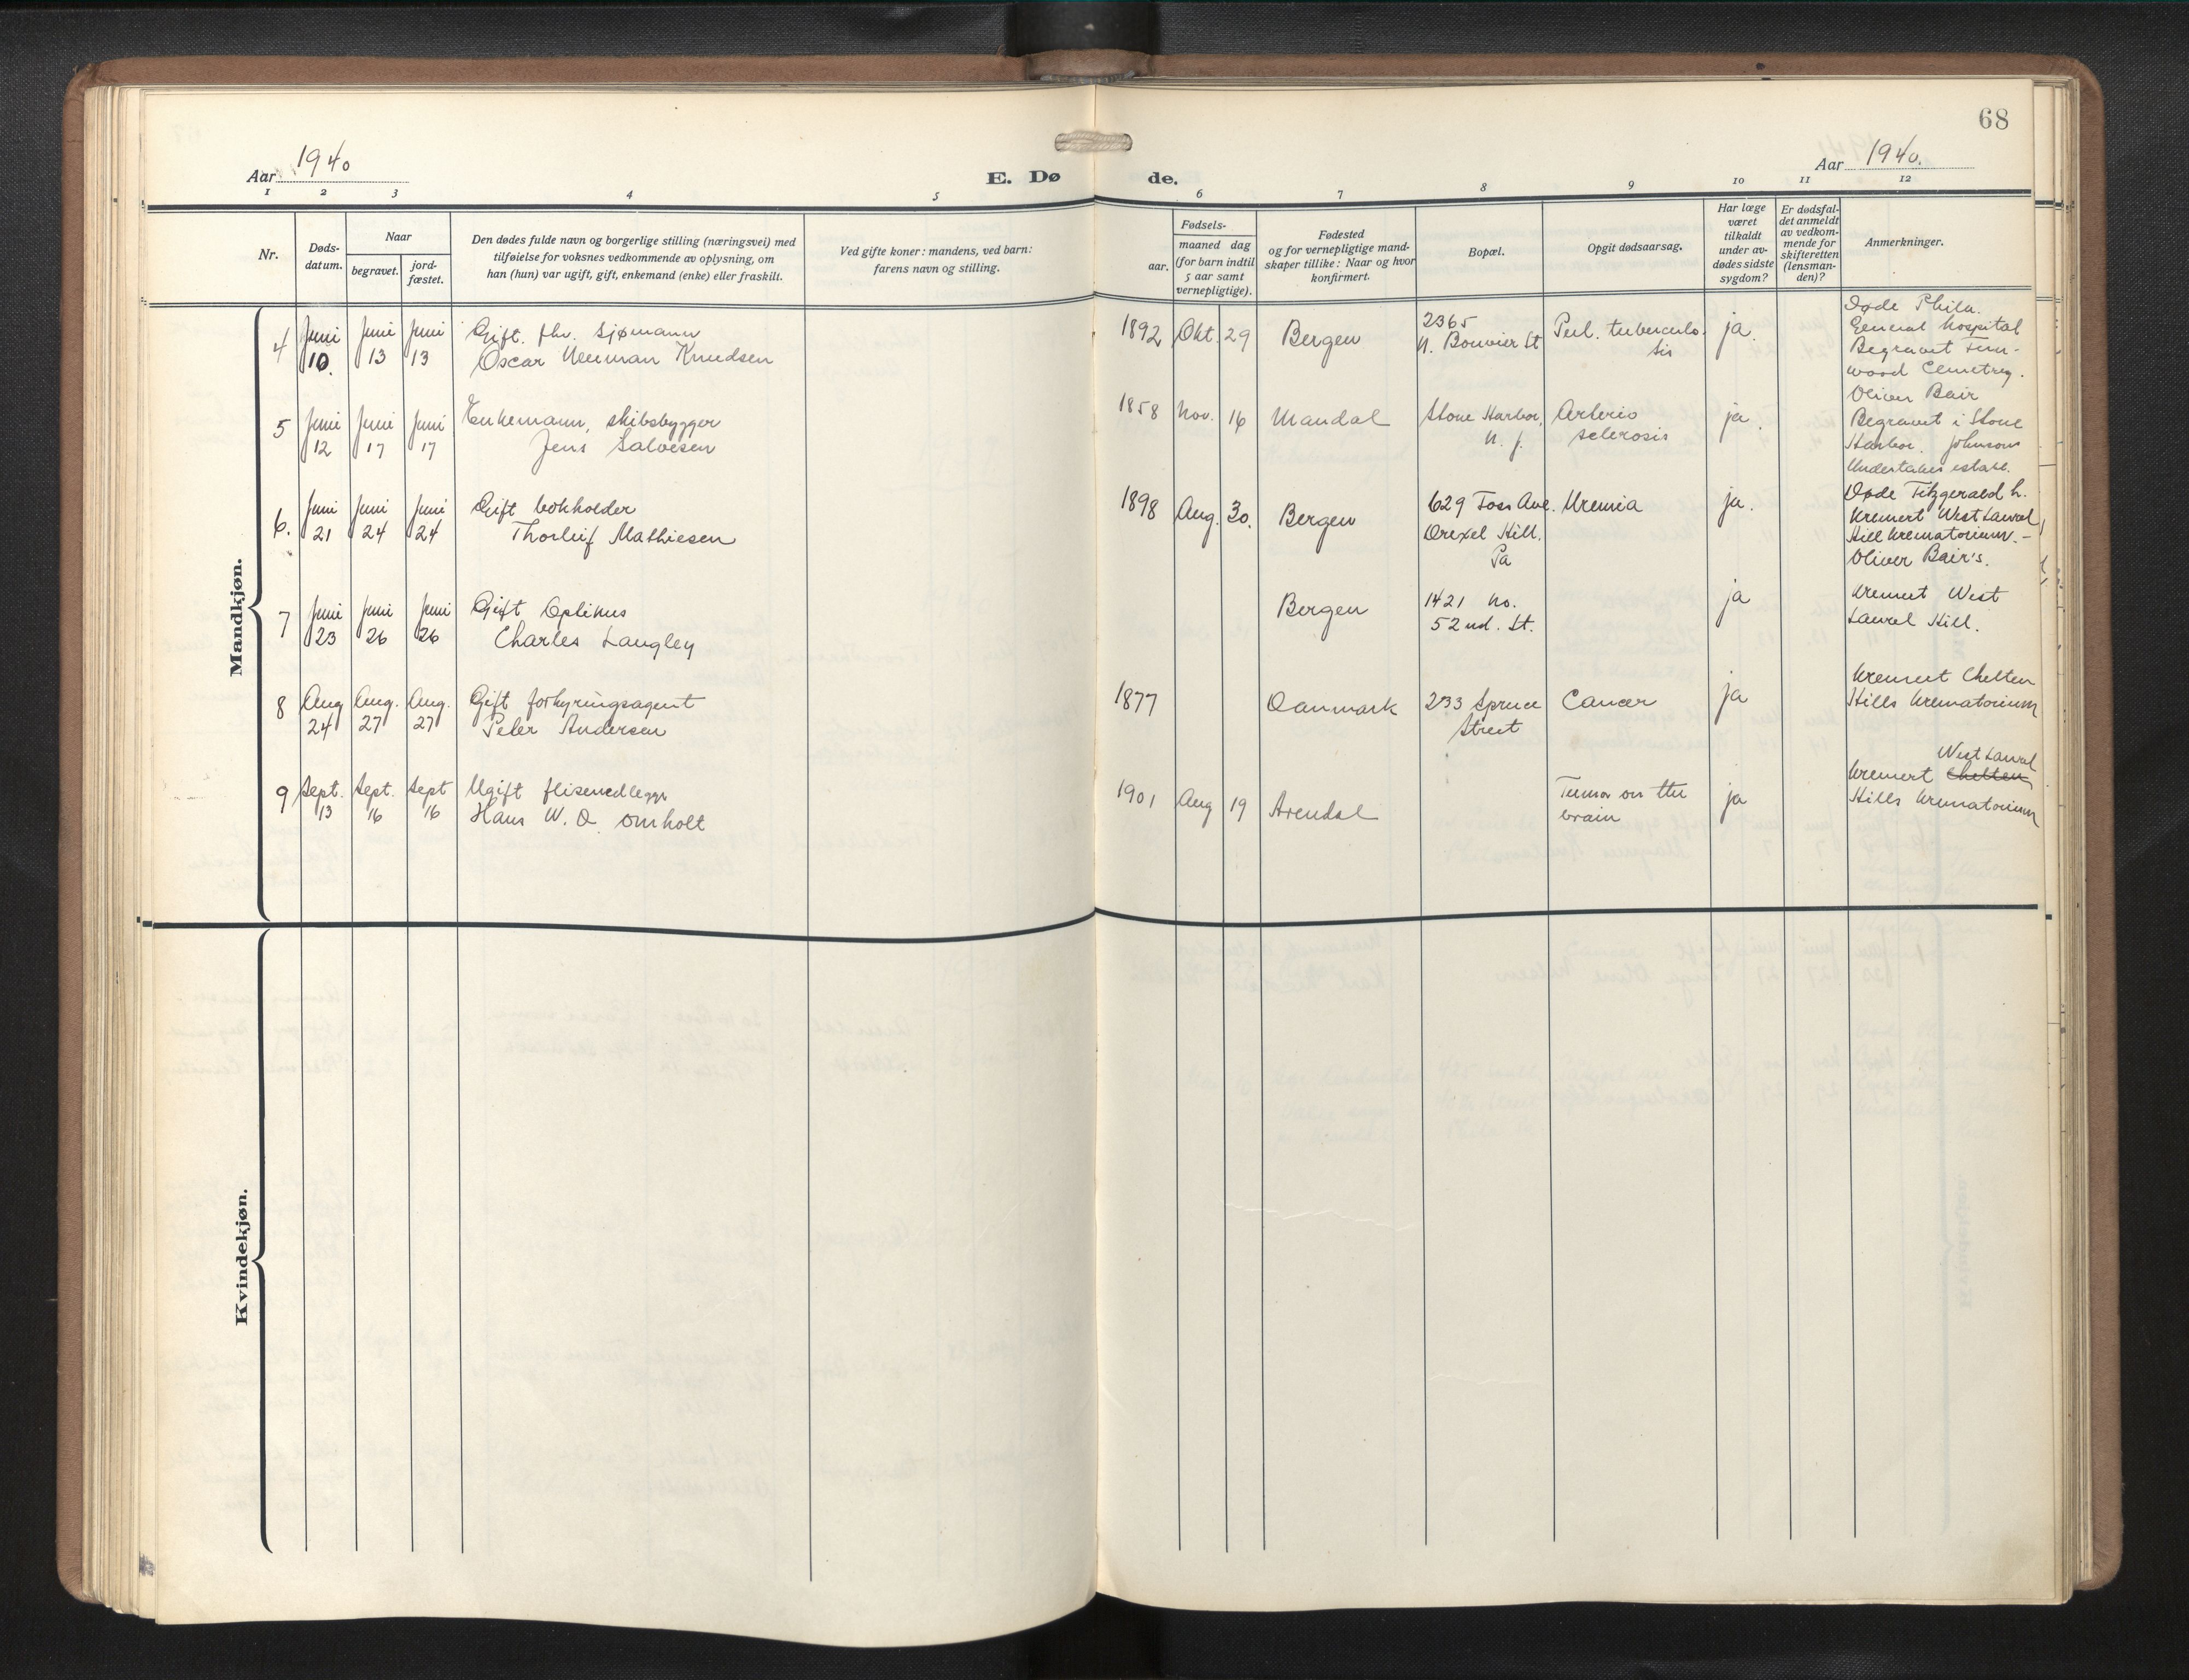 68
Aar 1940
E. Døde.
Aar 1940.
1 2 3 4 5 6 7 8 9 10 11 12
Nr.
Døds-
datum.
Naar
begravet.
jord-
fæstet.
Den dødes fulde navn og borgerlige stilling (næringsvei) med
tilføielse for voksnes vedkommende av oplysning, om
han (hun) var ugift, gift, enkemand (enke) eller fraskilt.
Ved gifte koner: mandens, ved barn:
farens navn og stilling.
Fødsels-
aar.
maaned dag
(for barn indtil
5 aar samt
vernepligtige).
Fødested
og for vernepligtige mand-
skaper tillike: Naar og hvor
konfirmert.
Bopæl.
Opgit dødsaarsag.
Har læge
været
tilkaldt
under av-
dødes sidste
sygdom?
Er dødsfal-
det anmeldt
av vedkom-
mende for
skifteretten
(lensman-
den)?
Anmerkninger.
Mandkjøn.
4
Juni
10.
Juni
13
Juni
13
Gift. fhv. sjømann
Oscar Neuman Knudsen
1892 Okt. 29
Bergen
2365
N. Bouvier St
Pul. tuberculo-
sis
ja.
Døde Phila.
General hospital
Begravet Fern-
wood Cemetrey.
Oliver Bair
5
Juni
12
Juni
17
Juni
17
Enkemann, skibsbygger
Jens Salvesen
1858 Nov. 16
Mandal
Stone Harbor,
N. J.
Arterio
sclerosis
ja.
Begravet i Stone
Harbor. Johnson
Undertaker establ.
6.
Juni
21
Juni
24
Juni
24
Gift bokholder
Thorleif Mathiesen
1898 Aug. 30.
Bergen
629 Foss Ave.
Drexel Hill,
Pa
Uremia
ja.
Døde Fitzgerald h.
Kremert West Laurel
Hill Krematorium.-
Oliver Bair's.
7
Juni
23
Juni
26
Juni
26
Gift Optikus
Charles Langley
Bergen
1421 No.
52nd. St.
ja
Kremert West
Laurel Hill.
8
Aug
24
Aug.
27
Aug.
27
Gift forhyringsagent
Peter Andersen
1877
Danmark
233 Spruce
Street
Cancer
ja
Kremert Chelten
Hills Krematorium
9
Sept.
13
Sept.
16
Sept
16
Ugift flisenedlegger
Hans W. O. Omholt
1901 Aug 19
Arendal
Tumor on the
brain
ja
West Laurel
Kremert Chelten
Hills Krematorium
Kvindekjøn.